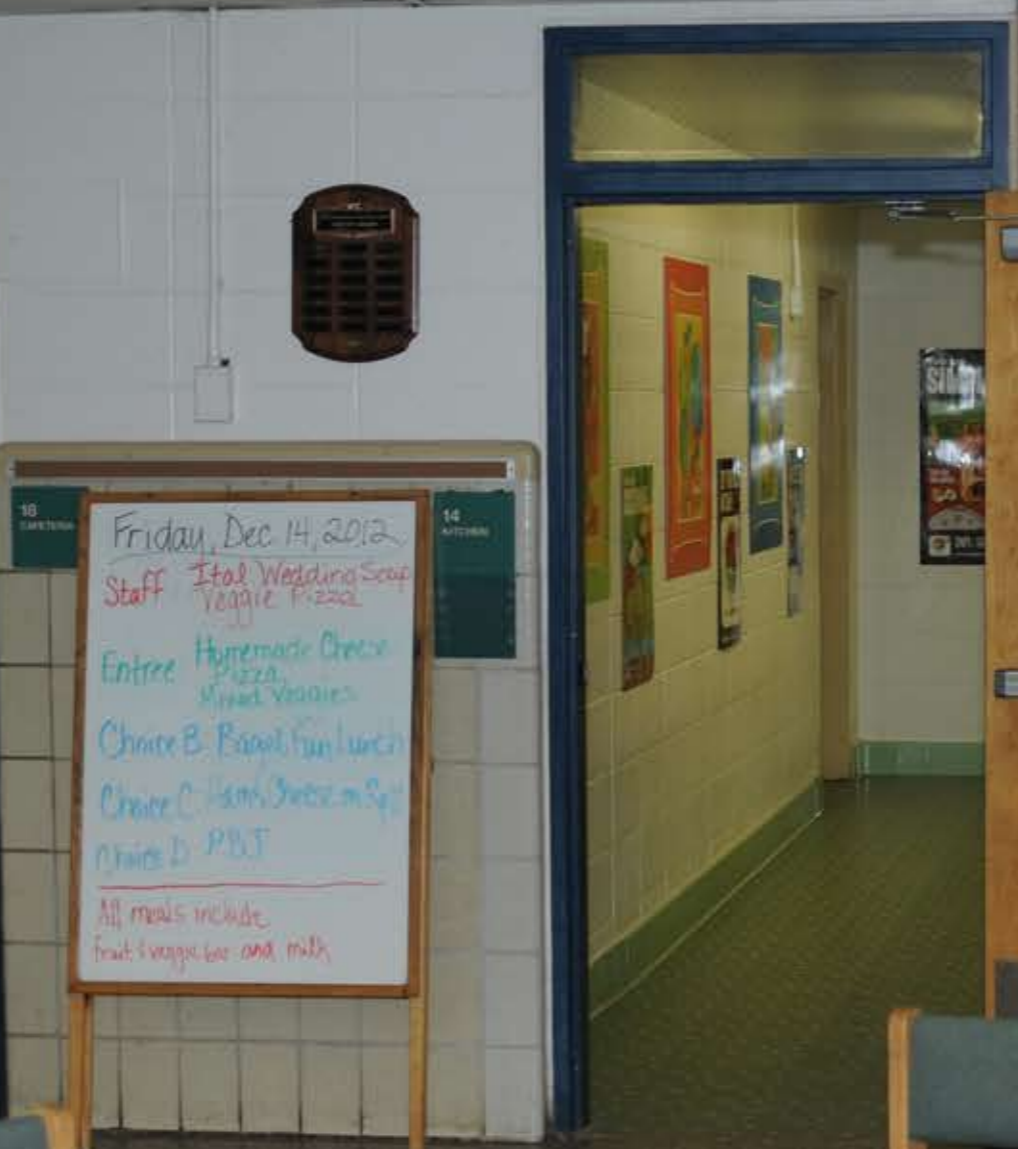 18
CAFETERIA
14
KITCHEN
Friday, Dec 14, 2012
Staff Ital Wedding Soup
Veggie Pizza
Entree Homemade Cheese
Pizza
Mixed Veggies
Choice B Bagel Fun Lunch
Choice C Ham & Cheese on
Choice D PBJ
All meals include
fruit & veggie bar and milk